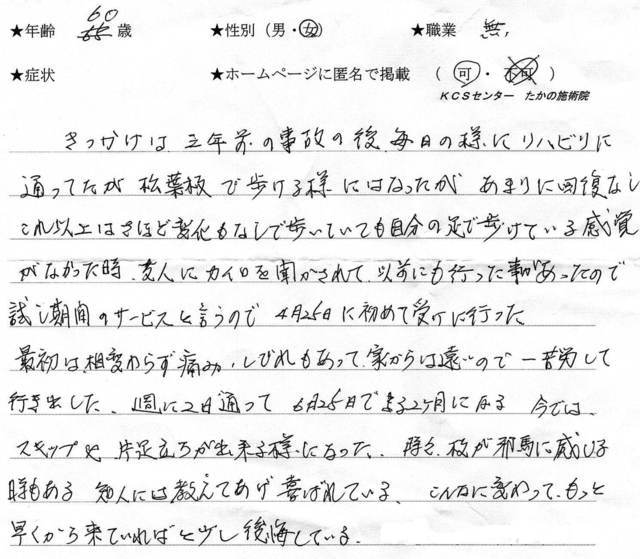 ★年齢 60 歳 ★性別（男・女） ★職業 無,
★症状 ★ホームページに匿名で掲載 （ 可 ・ 不可 ）
KCSセンター たかの施術院
きっかけは 三年前の事故の後、毎日の様に リハビリに
通ってたが 松葉杖で歩ける様にはなったが あまりに回復なし
これ以上はさほど変化もなしで歩いていても自分の足で歩けている感覚
がなかった時、友人にカイロを聞かされて、以前にも行った事があったので
試し期間のサービスと言うので 4月25日に初めて受けに行った
最初は相変わらず痛み、しびれもあって、家からは遠いので一苦労して
行き出した、週に2日通って 6月25日で 2ヶ月になる 今では、
スキップや 片足立ちが出来る様になった、時々、杖が邪魔に感じる
時もある 知人には教えてあげ喜ばれている、こんなに変わって、もっと
早くから来ていればと少し後悔している、